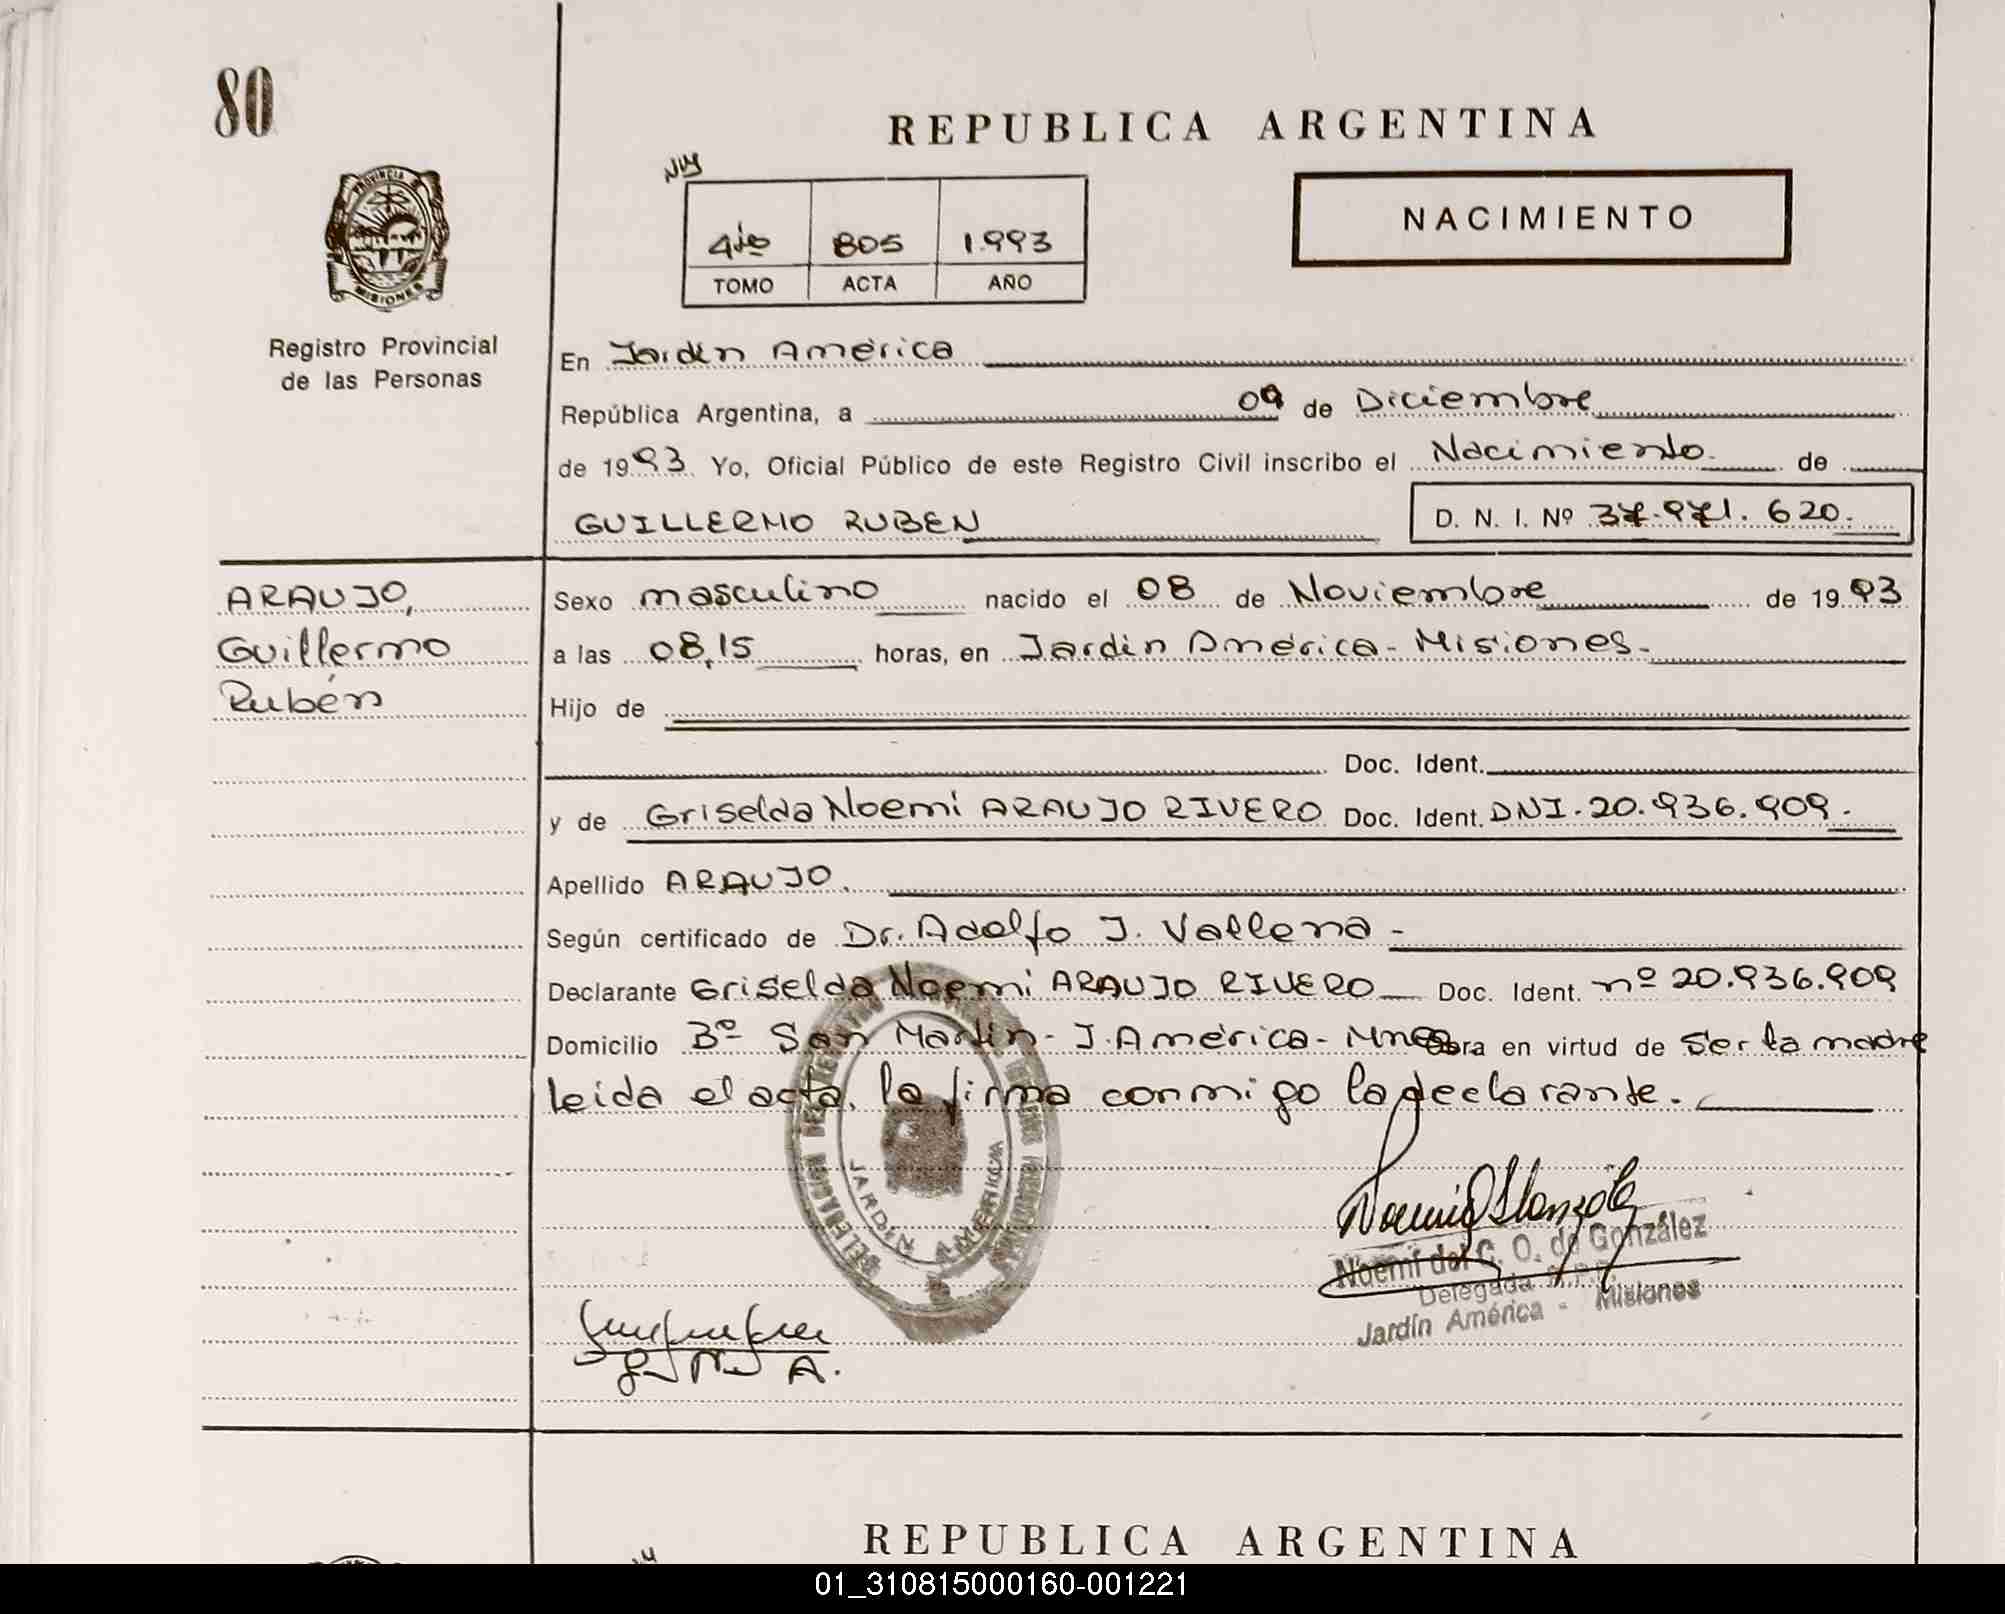 80
REPUBLICA ARGENTINA
PROVINCIA D
MISIONES
NACIMIENTO
4to 805 1.993
TOMO ACTA AÑO
Registro Provincial
de las Personas
En Jardín América
República Argentina, a 09 de Diciembre
de 1993. Yo, Oficial Público de este Registro Civil inscribo el Nacimiento de
GUILLERMO RUBEN D. N. I. Nº 37.971.620.-
ARAUJO,
Guillermo
Rubén
Sexo masculino nacido el 08 de Noviembre de 1993
a las 08,15 horas, en Jardín América - Misiones.
Hijo de
Doc. Ident.
y de Griselda Noemi ARAUJO RIVERO Doc. Ident. DNI. 20.936.909.-
Apellido ARAUJO.
Según certificado de Dr. Adolfo J. Vallena -
Declarante Griselda Noemi ARAUJO RIVERO Doc. Ident. nº 20.936.909
Domicilio Bº San Martín - J. América - Mnes Obra en virtud de ser la madre
leida el acta, la firma conmigo la declarante.
JARDIN AMERICA
Noemí del C. O. de González
Delegada R.P.P.
Jardín América - Misiones
G. N. A.
REPUBLICA ARGENTINA
01_310815000160-001221